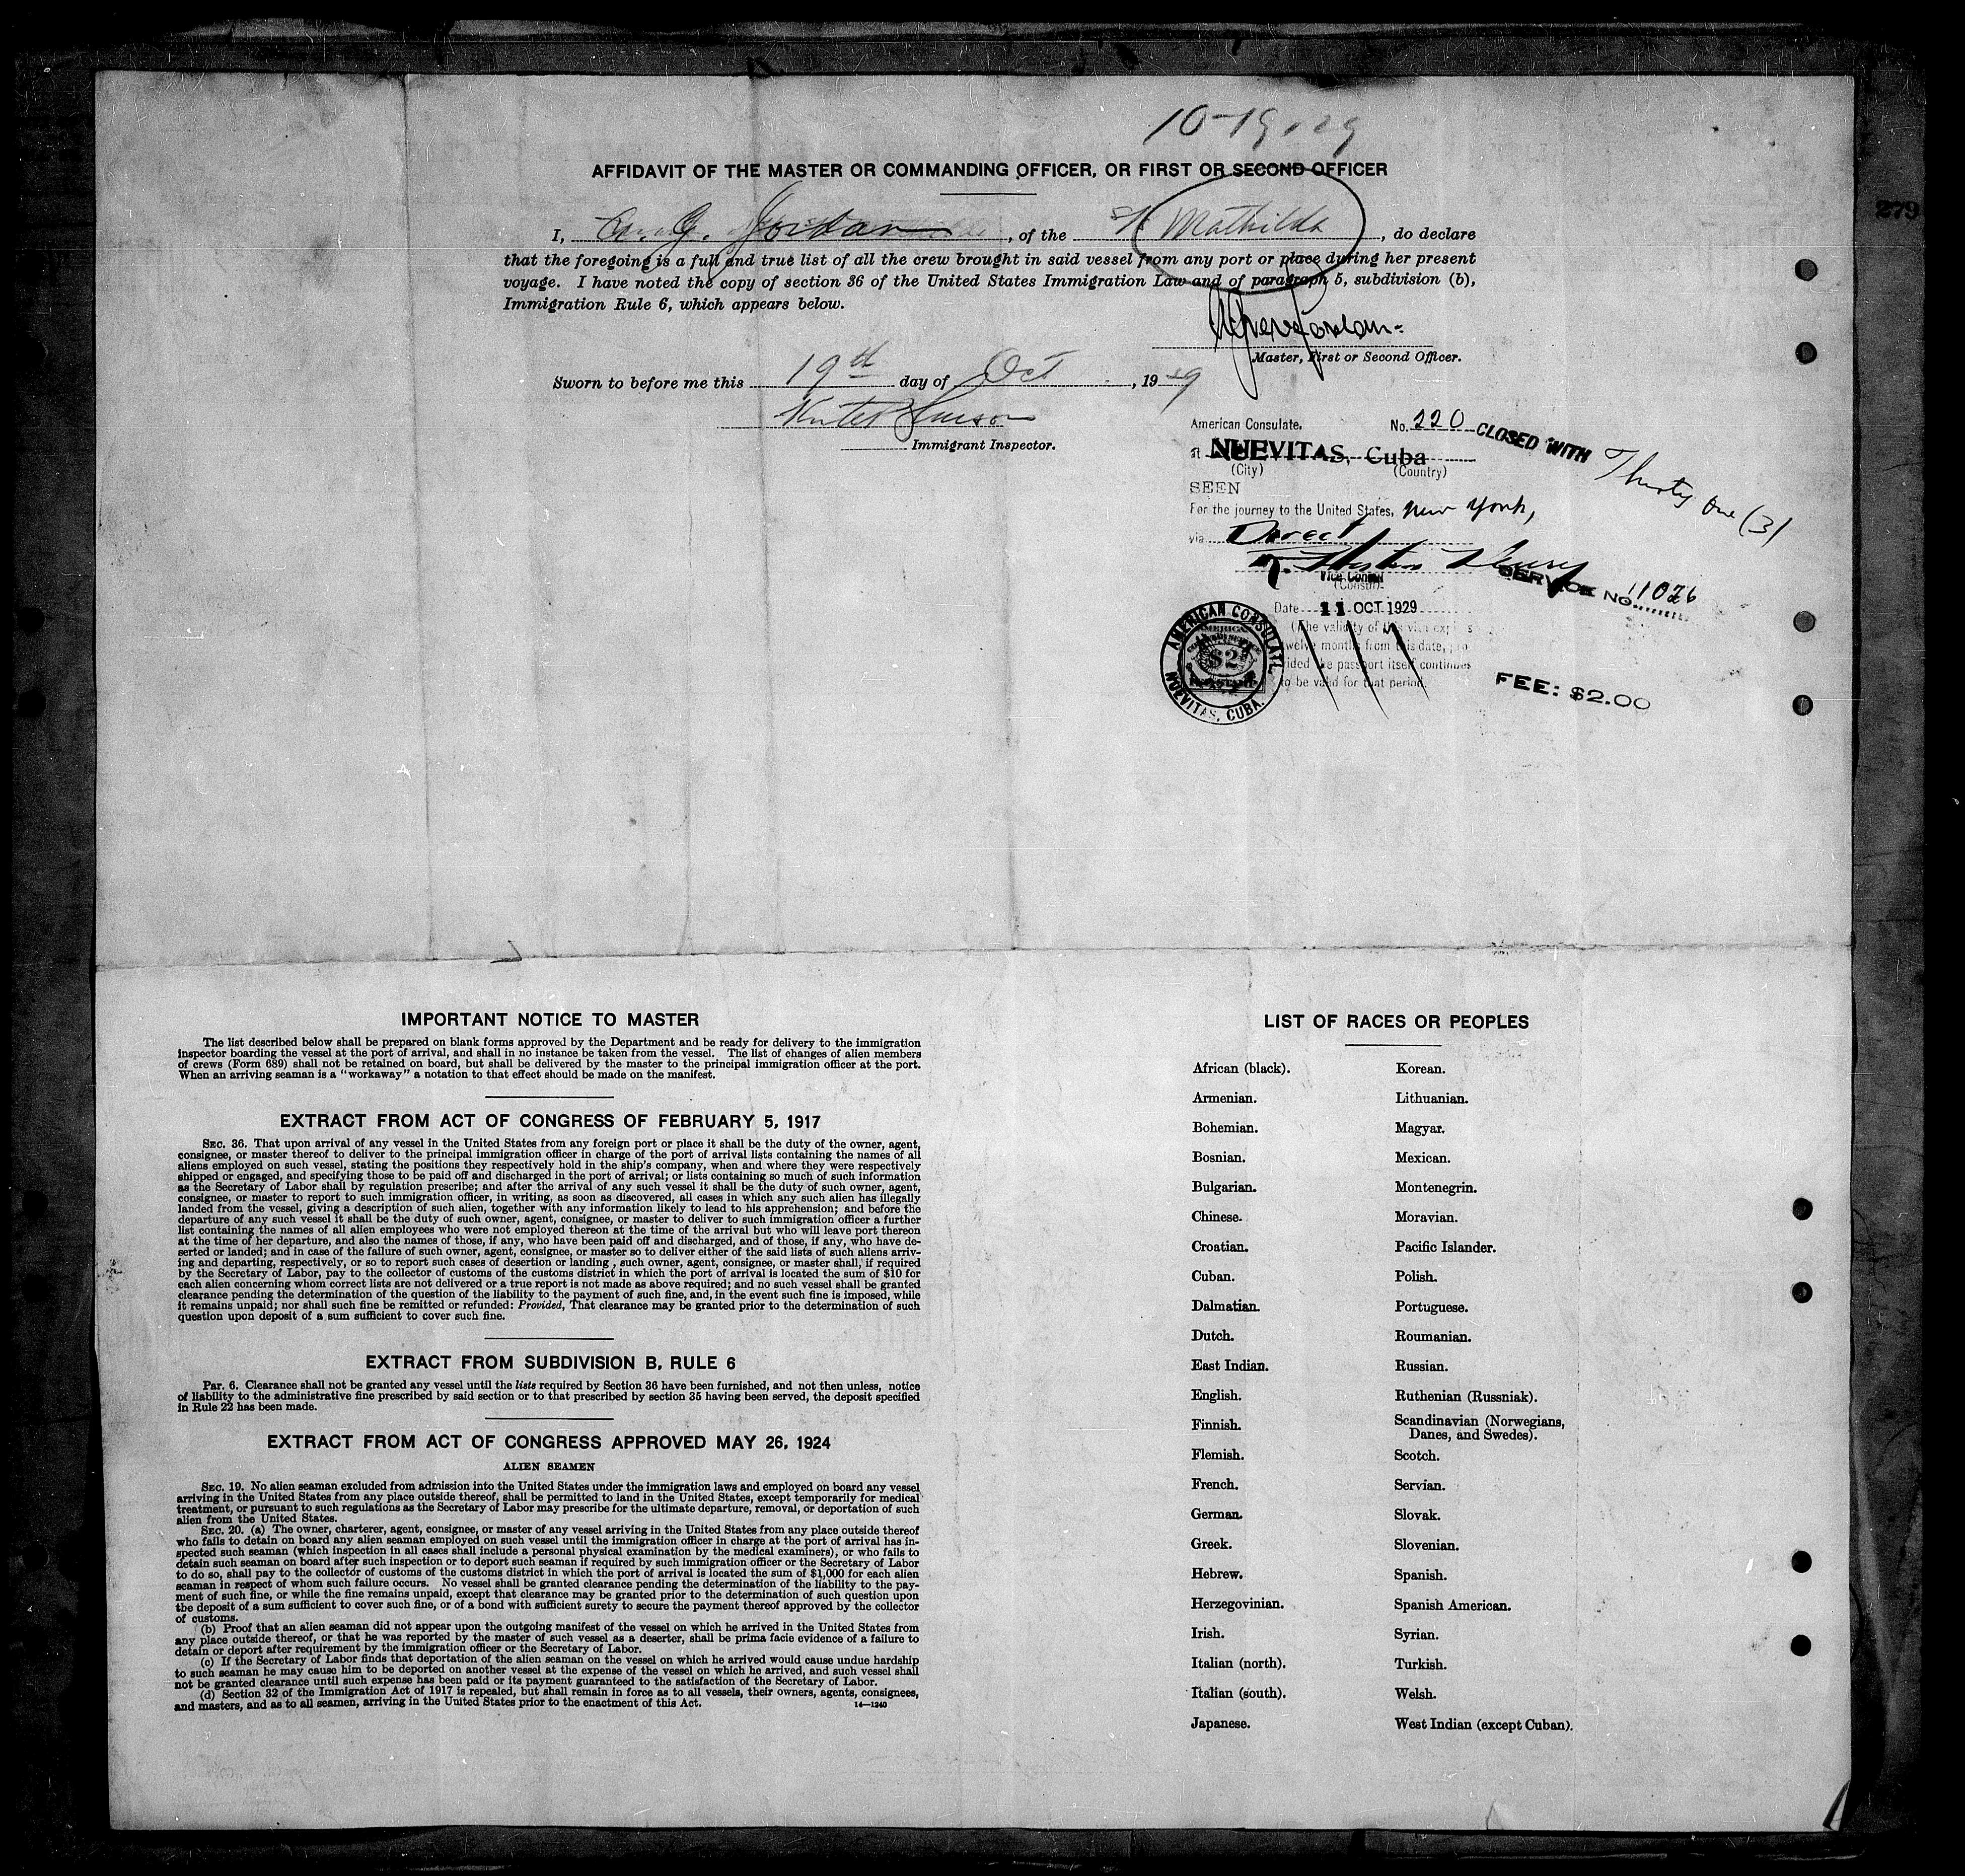 10-19-29
279
AFFIDAVIT OF THE MASTER OR COMMANDING OFFICER, OR FIRST OR SECOND OFFICER
I, G. Jordan, of the Mathilda, do declare
that the foregoing is a full and true list of all the crew brought in said vessel from any port or place during her present
voyage. I have noted the copy of section 36 of the United States Immigration Law and of paragraph 5, subdivision (b),
Immigration Rule 6, which appears below.
Master, First or Second Officer.
Sworn to before me this 19th day of Oct, 1929
Immigrant Inspector.
American Consulate. No. 220 CLOSED WITH Thirty one (31
at NUEVITAS, Cuba
(City) (Country)
SEEN
For the journey to the United States, New York,
via Direct
Vice Consul
(Consul)
SERVICE NO. 11026
Date 11 OCT. 1929
(The validity of this visa expires
twelve months from this date, pro
vided the passport itself continues
to be valid for that period.
AMERICAN CONSULATE
NUEVITAS, CUBA.
$2
FEE: $2.00
IMPORTANT NOTICE TO MASTER
The list described below shall be prepared on blank forms approved by the Department and be ready for delivery to the immigration
inspector boarding the vessel at the port of arrival, and shall in no instance be taken from the vessel. The list of changes of alien members
of crews (Form 689) shall not be retained on board, but shall be delivered by the master to the principal immigration officer at the port.
When an arriving seaman is a "workaway" a notation to that effect should be made on the manifest.
EXTRACT FROM ACT OF CONGRESS OF FEBRUARY 5, 1917
SEC. 36. That upon arrival of any vessel in the United States from any foreign port or place it shall be the duty of the owner, agent,
consignee, or master thereof to deliver to the principal immigration officer in charge of the port of arrival lists containing the names of all
aliens employed on such vessel, stating the positions they respectively hold in the ship's company, when and where they were respectively
shipped or engaged, and specifying those to be paid off and discharged in the port of arrival; or lists containing so much of such information
as the Secretary of Labor shall by regulation prescribe; and after the arrival of any such vessel it shall be the duty of such owner, agent,
consignee, or master to report to such immigration officer, in writing, as soon as discovered, all cases in which any such alien has illegally
landed from the vessel, giving a description of such alien, together with any information likely to lead to his apprehension; and before the
departure of any such vessel it shall be the duty of such owner, agent, consignee, or master to deliver to such immigration officer a further
list containing the names of all alien employees who were not employed thereon at the time of the arrival but who will leave port thereon
at the time of her departure, and also the names of those, if any, who have been paid off and discharged, and of those, if any, who have de-
serted or landed; and in case of the failure of such owner, agent, consignee, or master so to deliver either of the said lists of such aliens arriv-
ing and departing, respectively, or so to report such cases of desertion or landing, such owner, agent, consignee, or master shall, if required
by the Secretary of Labor, pay to the collector of customs of the customs district in which the port of arrival is located the sum of $10 for
each alien concerning whom correct lists are not delivered or a true report is not made as above required; and no such vessel shall be granted
clearance pending the determination of the question of the liability to the payment of such fine, and, in the event such fine is imposed, while
it remains unpaid; nor shall such fine be remitted or refunded: Provided, That clearance may be granted prior to the determination of such
question upon deposit of a sum sufficient to cover such fine.
EXTRACT FROM SUBDIVISION B, RULE 6
Par. 6. Clearance shall not be granted any vessel until the lists required by Section 36 have been furnished, and not then unless, notice
of liability to the administrative fine prescribed by said section or to that prescribed by section 35 having been served, the deposit specified
in Rule 22 has been made.
EXTRACT FROM ACT OF CONGRESS APPROVED MAY 26, 1924
ALIEN SEAMEN
SEC. 19. No alien seaman excluded from admission into the United States under the immigration laws and employed on board any vessel
arriving in the United States from any place outside thereof, shall be permitted to land in the United States, except temporarily for medical
treatment, or pursuant to such regulations as the Secretary of Labor may prescribe for the ultimate departure, removal, or deportation of such
alien from the United States.
SEC. 20. (a) The owner, charterer, agent, consignee, or master of any vessel arriving in the United States from any place outside thereof
who fails to detain on board any alien seaman employed on such vessel until the immigration officer in charge at the port of arrival has in-
spected such seaman (which inspection in all cases shall include a personal physical examination by the medical examiners), or who fails to
detain such seaman on board after such inspection or to deport such seaman if required by such immigration officer or the Secretary of Labor
to do so, shall pay to the collector of customs of the customs district in which the port of arrival is located the sum of $1,000 for each alien
seaman in respect of whom such failure occurs. No vessel shall be granted clearance pending the determination of the liability to the pay-
ment of such fine, or while the fine remains unpaid, except that clearance may be granted prior to the determination of such question upon
the deposit of a sum sufficient to cover such fine, or of a bond with sufficient surety to secure the payment thereof approved by the collector
of customs.
(b) Proof that an alien seaman did not appear upon the outgoing manifest of the vessel on which he arrived in the United States from
any place outside thereof, or that he was reported by the master of such vessel as a deserter, shall be prima facie evidence of a failure to
detain or deport after requirement by the immigration officer or the Secretary of Labor.
(c) If the Secretary of Labor finds that deportation of the alien seaman on the vessel on which he arrived would cause undue hardship
to such seaman he may cause him to be deported on another vessel at the expense of the vessel on which he arrived, and such vessel shall
not be granted clearance until such expense has been paid or its payment guaranteed to the satisfaction of the Secretary of Labor.
(d) Section 32 of the Immigration Act of 1917 is repealed, but shall remain in force as to all vessels, their owners, agents, consignees,
and masters, and as to all seamen, arriving in the United States prior to the enactment of this Act.
14—1240
LIST OF RACES OR PEOPLES
African (black).
Armenian.
Bohemian.
Bosnian.
Bulgarian.
Chinese.
Croatian.
Cuban.
Dalmatian.
Dutch.
East Indian.
English.
Finnish.
Flemish.
French.
German.
Greek.
Hebrew.
Herzegovinian.
Irish.
Italian (north).
Italian (south).
Japanese.
Korean.
Lithuanian.
Magyar.
Mexican.
Montenegrin.
Moravian.
Pacific Islander.
Polish.
Portuguese.
Roumanian.
Russian.
Ruthenian (Russniak).
Scandinavian (Norwegians,
Danes, and Swedes).
Scotch.
Servian.
Slovak.
Slovenian.
Spanish.
Spanish American.
Syrian.
Turkish.
Welsh.
West Indian (except Cuban).